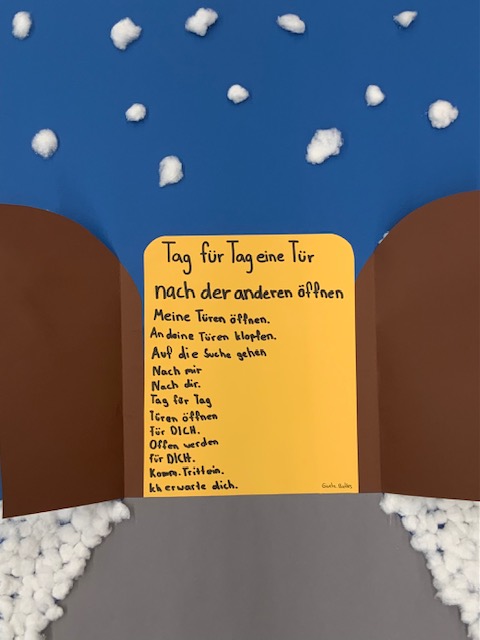 Tag für Tag eine Tür
nach der anderen öffnen
Meine Türen öffnen.
An deine Türen klopfen.
Auf die Suche gehen
Nach mir
Nach dir.
Tag für Tag
Türen öffnen
für DICH.
Offen werden
für DICH.
Komm. Tritt ein.
Ich erwarte dich.